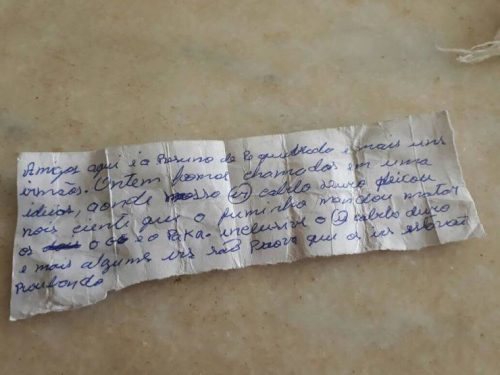 Amigos aqui é o Resumo de Rg quebrada e mais uns
irmãos. Ontem fomos chamados em uma
ideia, aonde nosso (ir) cabelo duro deixou
nois ciente que o fuminho mandou matar
os o GG e o Paka. inclusive o (ir) cabelo duro
e mais algums irs são Prova que os irs estavão
Roubando